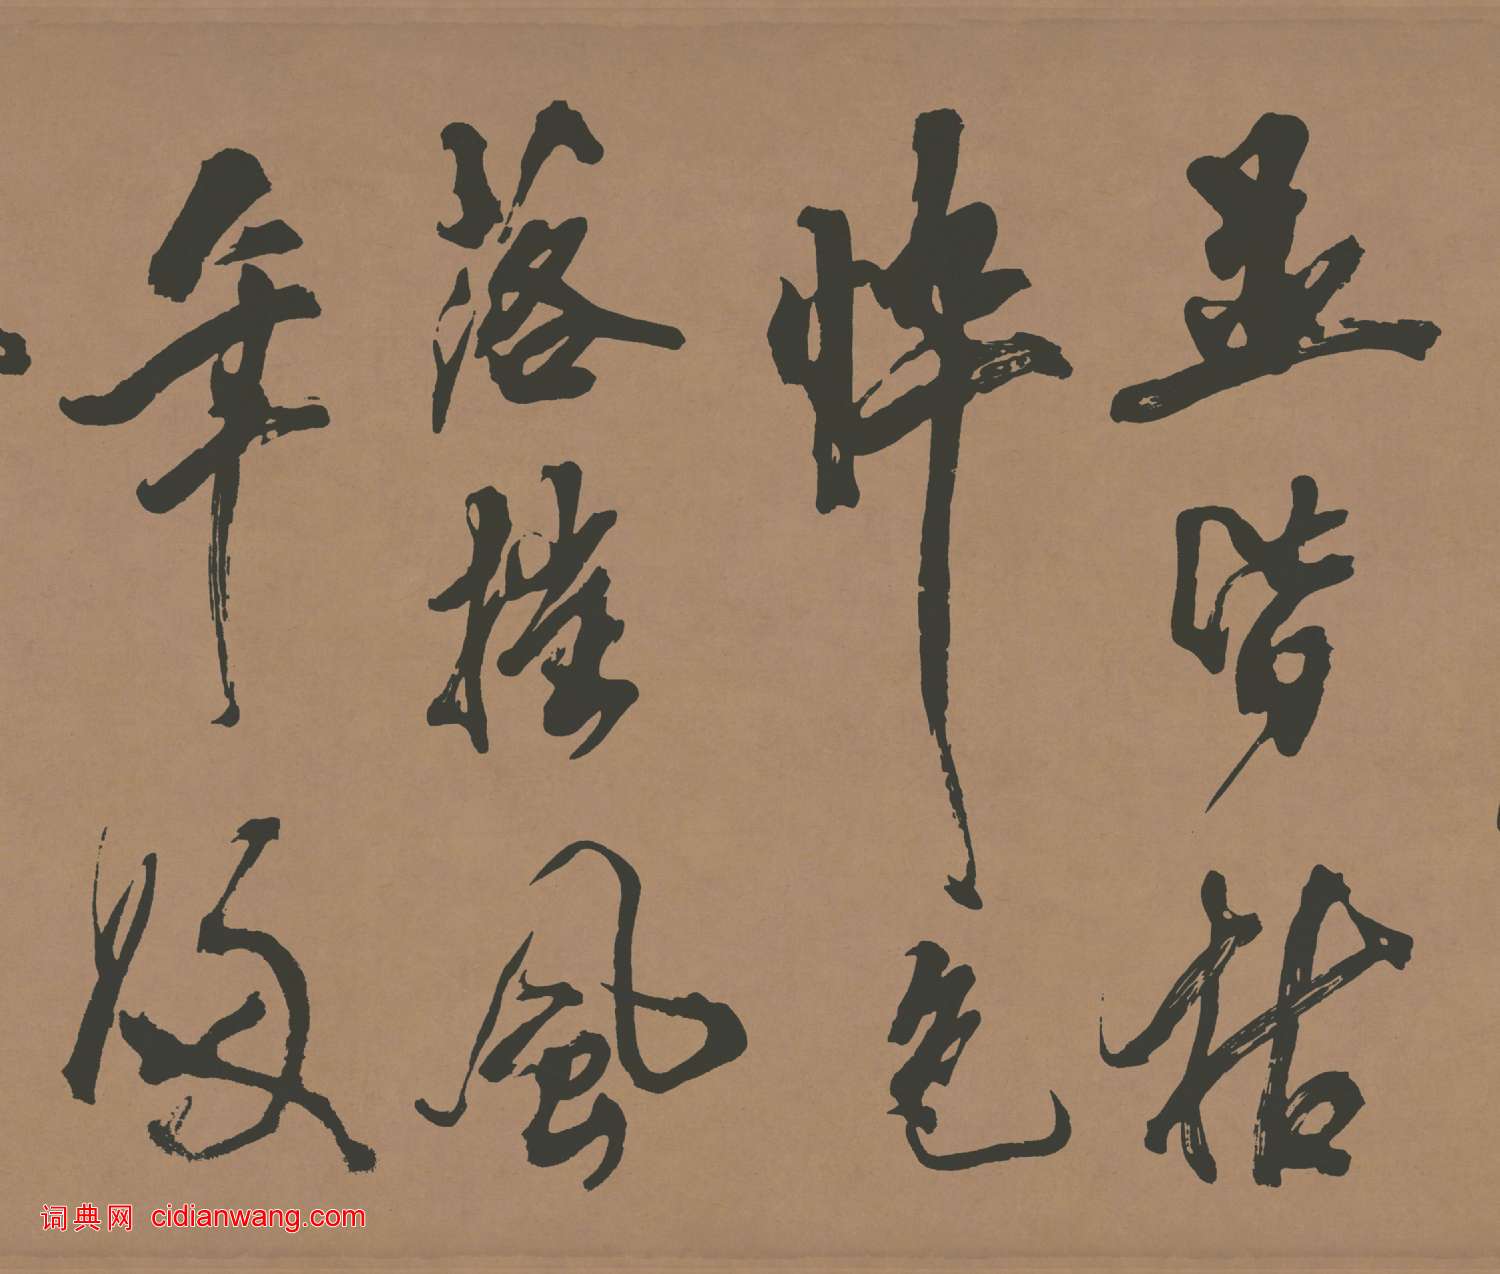 並皆枯
悴色
落摧風
年
词典网 cidianwang.com